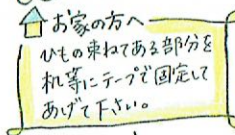 お家の方へ
ひもの束ねてある部分を
机等にテープで固定して
あげて下さい。